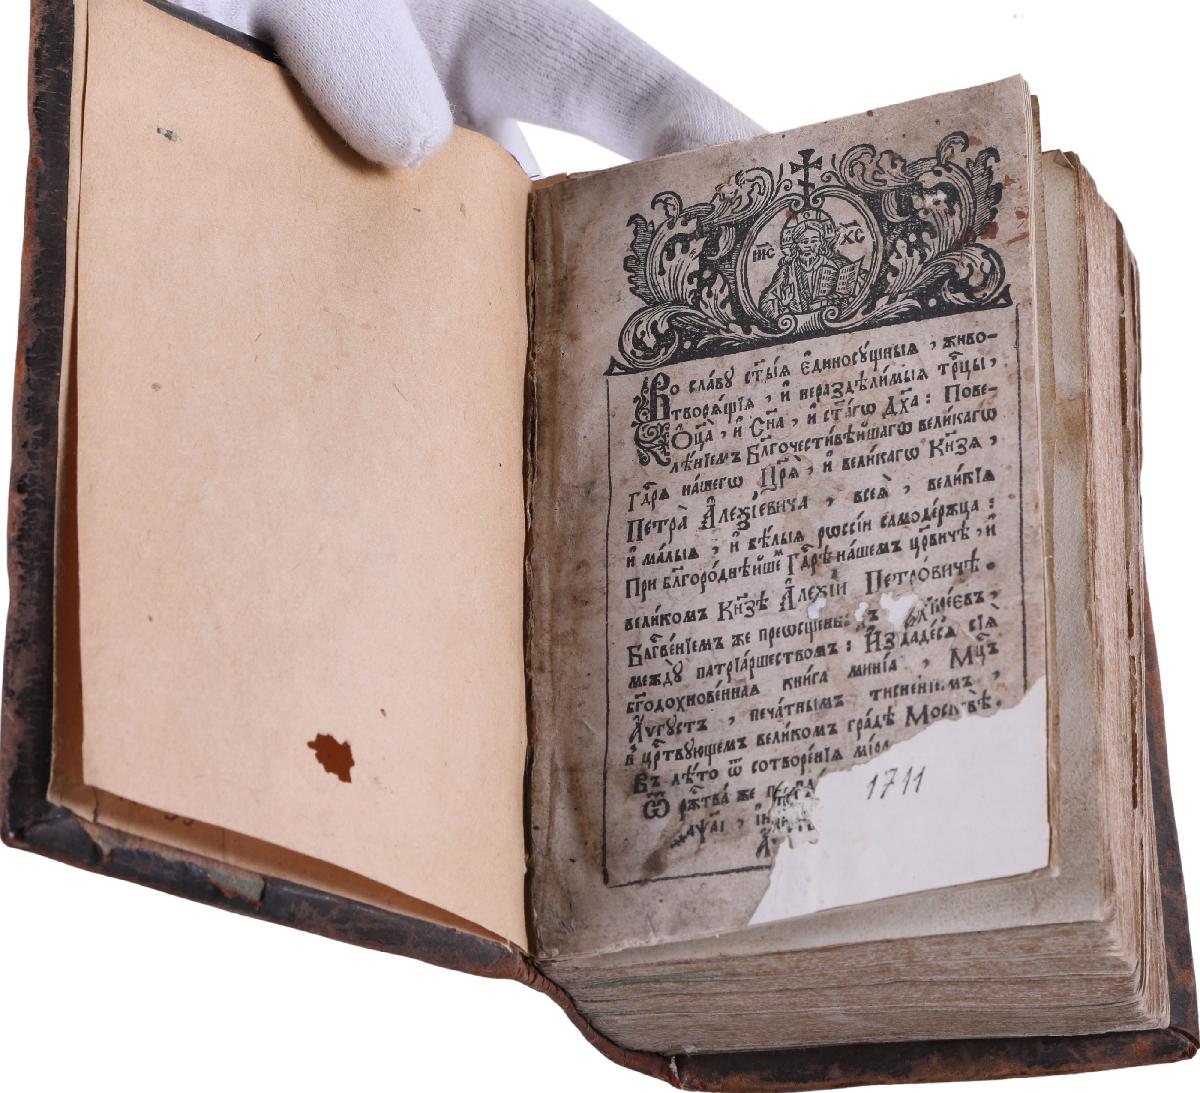 ІИС ХС
Во сла́ву ст҃ы́ѧ є҆диносу́щныѧ , живо-
творѧ́щїѧ , и҆ нераздѣли́мыѧ трⷪ҇цы ,
Ѻ҆ц҃а̀ , и҆ Сн҃а , и҆ ст҃а́гѡ Дх҃а : Пове-
лѣ́нїемъ Бл҃гочести́вѣйшагѡ вели́кагѡ
Гдⷭ҇рѧ на́шегѡ Цр҃ѧ̀ , и҆ вели́кагѡ Кн҃зѧ ,
Петра̀ А҆леѯі́евича , всеѧ̀ , вели́кїѧ
и҆ ма́лыѧ , и҆ бѣ́лыѧ рѡссі́и самоде́ржца :
При бл҃горо́днѣйшемъ Гдⷭ҇рѣ на́шемъ цр҃вичѣ , и҆
вели́комъ Кн҃зѣ А҆леѯі́и Петро́вичѣ .
Блг҃ве́нїемъ же преѡсщ҃е́н ъ а҆рхїере́євъ ,
междꙋ̀ патрїа́ршествомъ : И҆здаде́сѧ сїѧ̀
бг҃одохнове́ннаѧ кни́га мині́а , Мцⷭ҇ъ
А҆́ѵгустъ , печа́тнымъ тисне́нїемъ ,
в̾ црⷭ҇твующемъ вели́комъ гра́дѣ Москвѣ̀ .
Въ лѣ́то ѿ сотворе́нїѧ мі́ра
Ѿ рж҃тва́ же по пло́
҂аѱаі , і҆нді́кта
1711